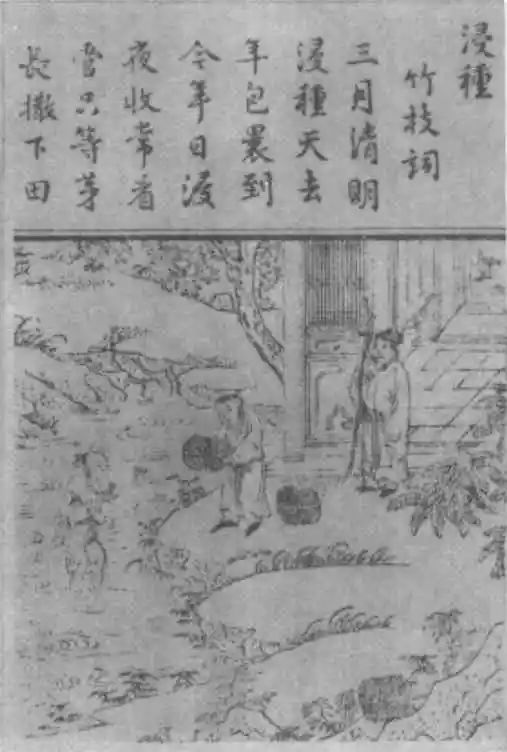 浸種
竹枝詞
三月清明
浸種天去
年包裹到
今年日浸
夜收常看
管只等芽
長撒下田